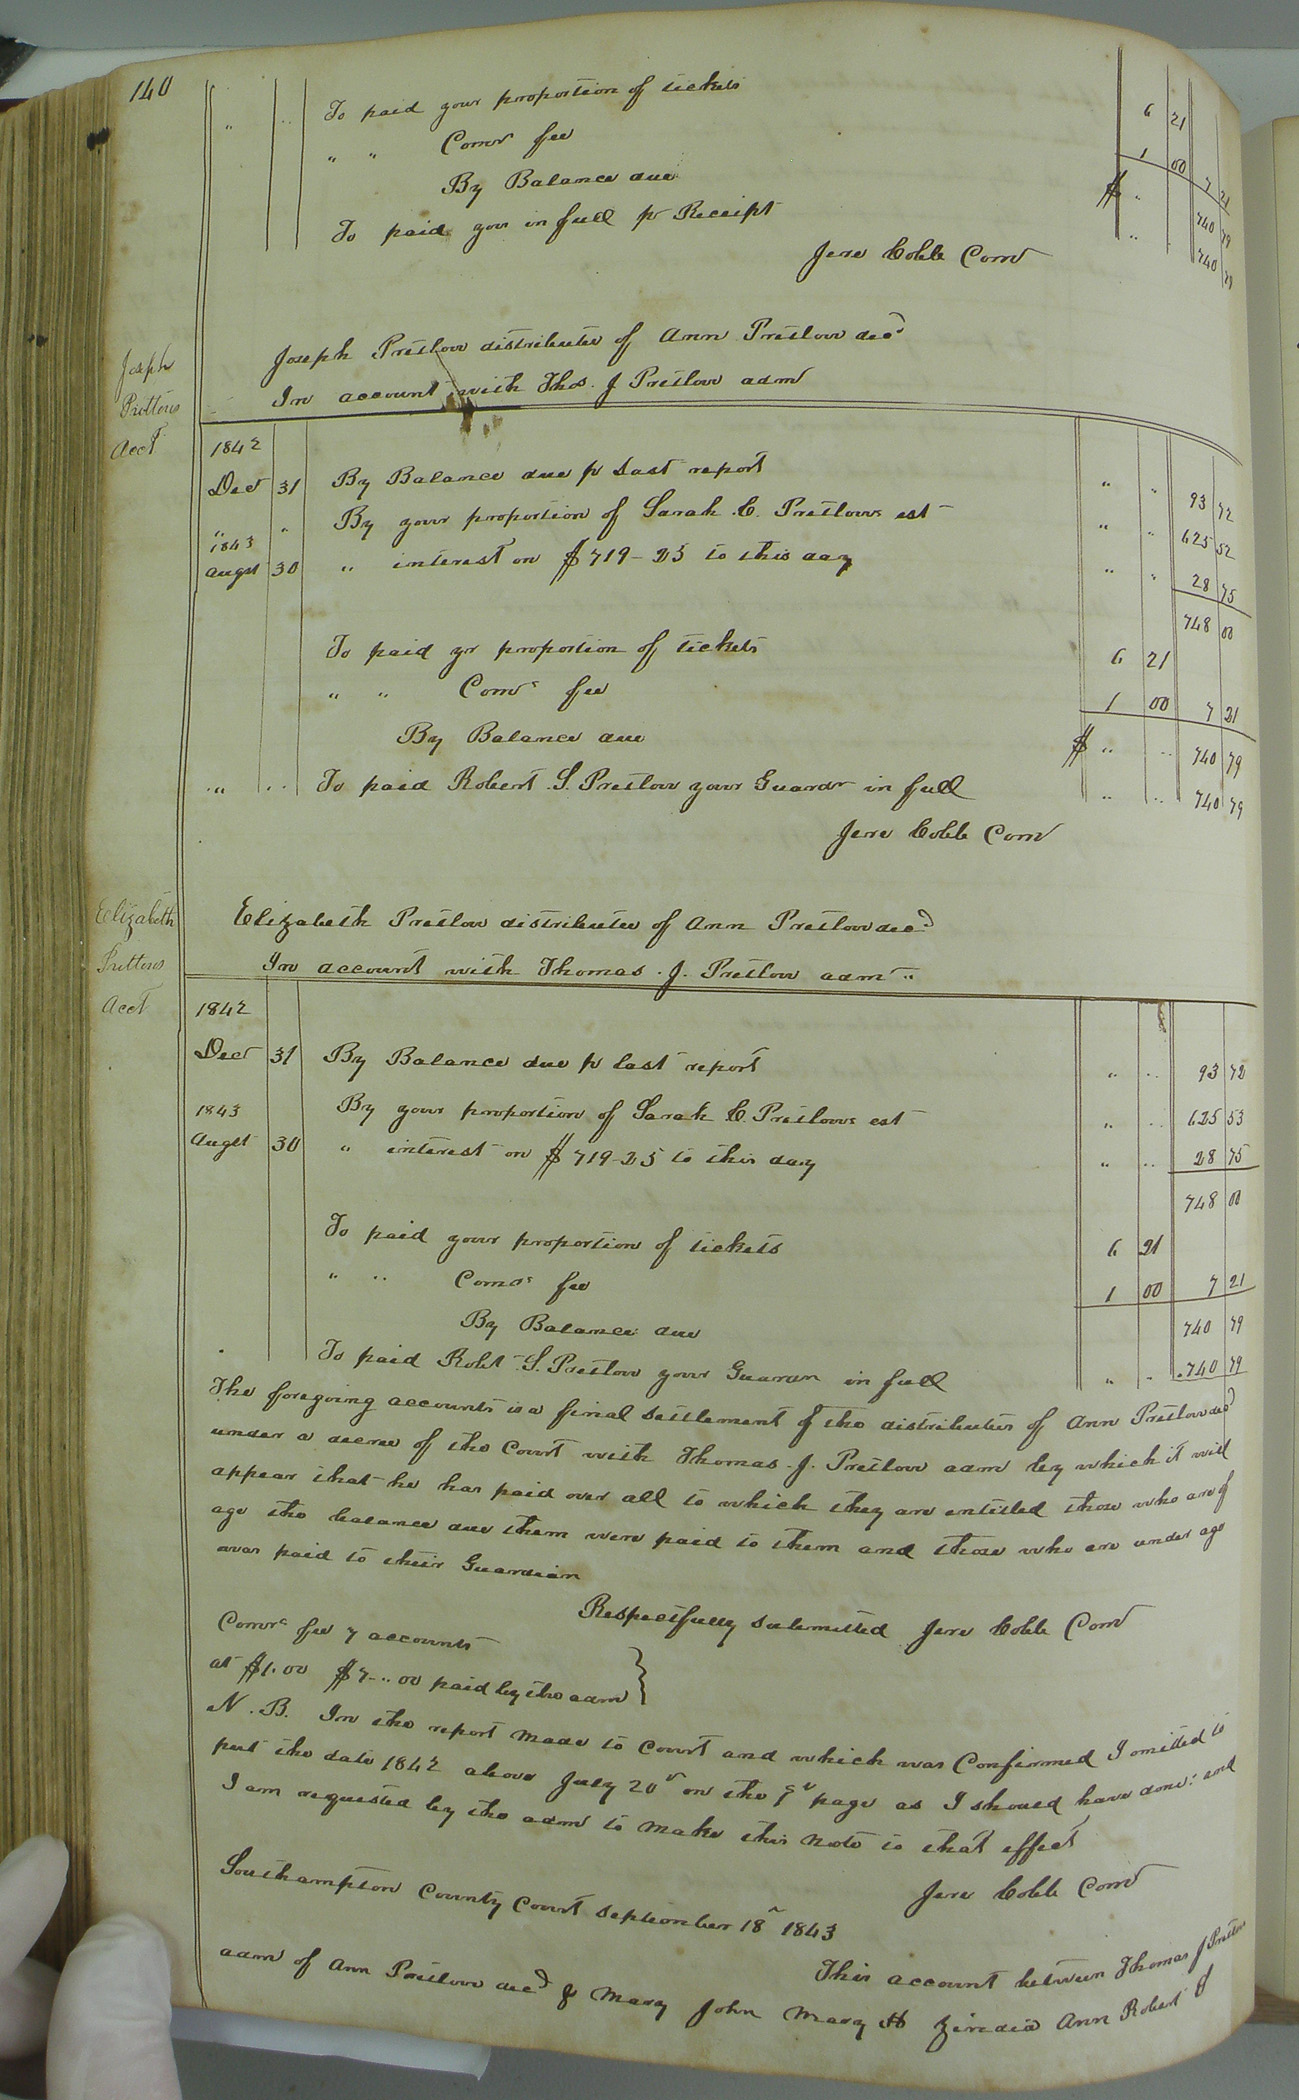 140
" " To paid your proportion of tickets 6 21
" " Comr fee 1 00 7 21
By Balance due $ " 740 79
To paid you in full pr Receipt " 740 79
Jere Cobb Comr
Joseph Pretlow distributee of Ann Pretlow decd
In account with Thos. J Pretlow admr
Joseph
Prettows
Acct
1842
Decr 31 By Balance due pr Last report " " 93 72
" " By your proportion of Sarah C. Pretlows est " " 625 52
1843
Augst 30 " interest on $719-25 to this day " " 28 75
748 00
To paid yr proportion of tickets 6 21
" " Comrs fee 1 00 7 21
By Balance due $ " " 740 79
" " To paid Robert S. Pretlow your Guardn in full " " 740 79
Jere Cobb Comr
Elizabeth Pretlow distributee of Ann Pretlow decd
In account with Thomas. J. Pretlow admr
Elizabeth
Prettows
Acct
1842
Decr 31 By Balance due pr last report " " 93 72
1843 By your proportion of Sarah C. Pretlows est " " 625 53
Augst 30 " interest on $719-25 to this day " " 28 75
748 00
To paid your proportion of tickets 6 21
" " Comrs fee 1 00 7 21
By Balance due 740 79
To paid Robt S. Pretlow your Guardn in full " " 740 79
The foregoing accounts is a final Settlement of the distributees of Ann Pretlow decd
under a decree of the Court with Thomas. J. Pretlow admr by which it will
appear that he has paid over all to which they are entitled those who are of
age the balance due them were paid to them and those who are under age
was paid to their Guardian
Respectfully submitted Jere Cobb Comr
Comrs fee 7 accounts
at $1.00 $7...00 paid by the admr }
N. B. In the report made to Court and which was Confirmed I omitted to
put the date 1842 above July 20th on the page as I should have done: and
I am requested by the admr to make this note to that effect
Jere Cobb Comr
Southampton County Court September 18th 1843
This account between Thomas J Pretlow
admr of Ann Pretlow decd & Mary John Mary H Ann Robert &